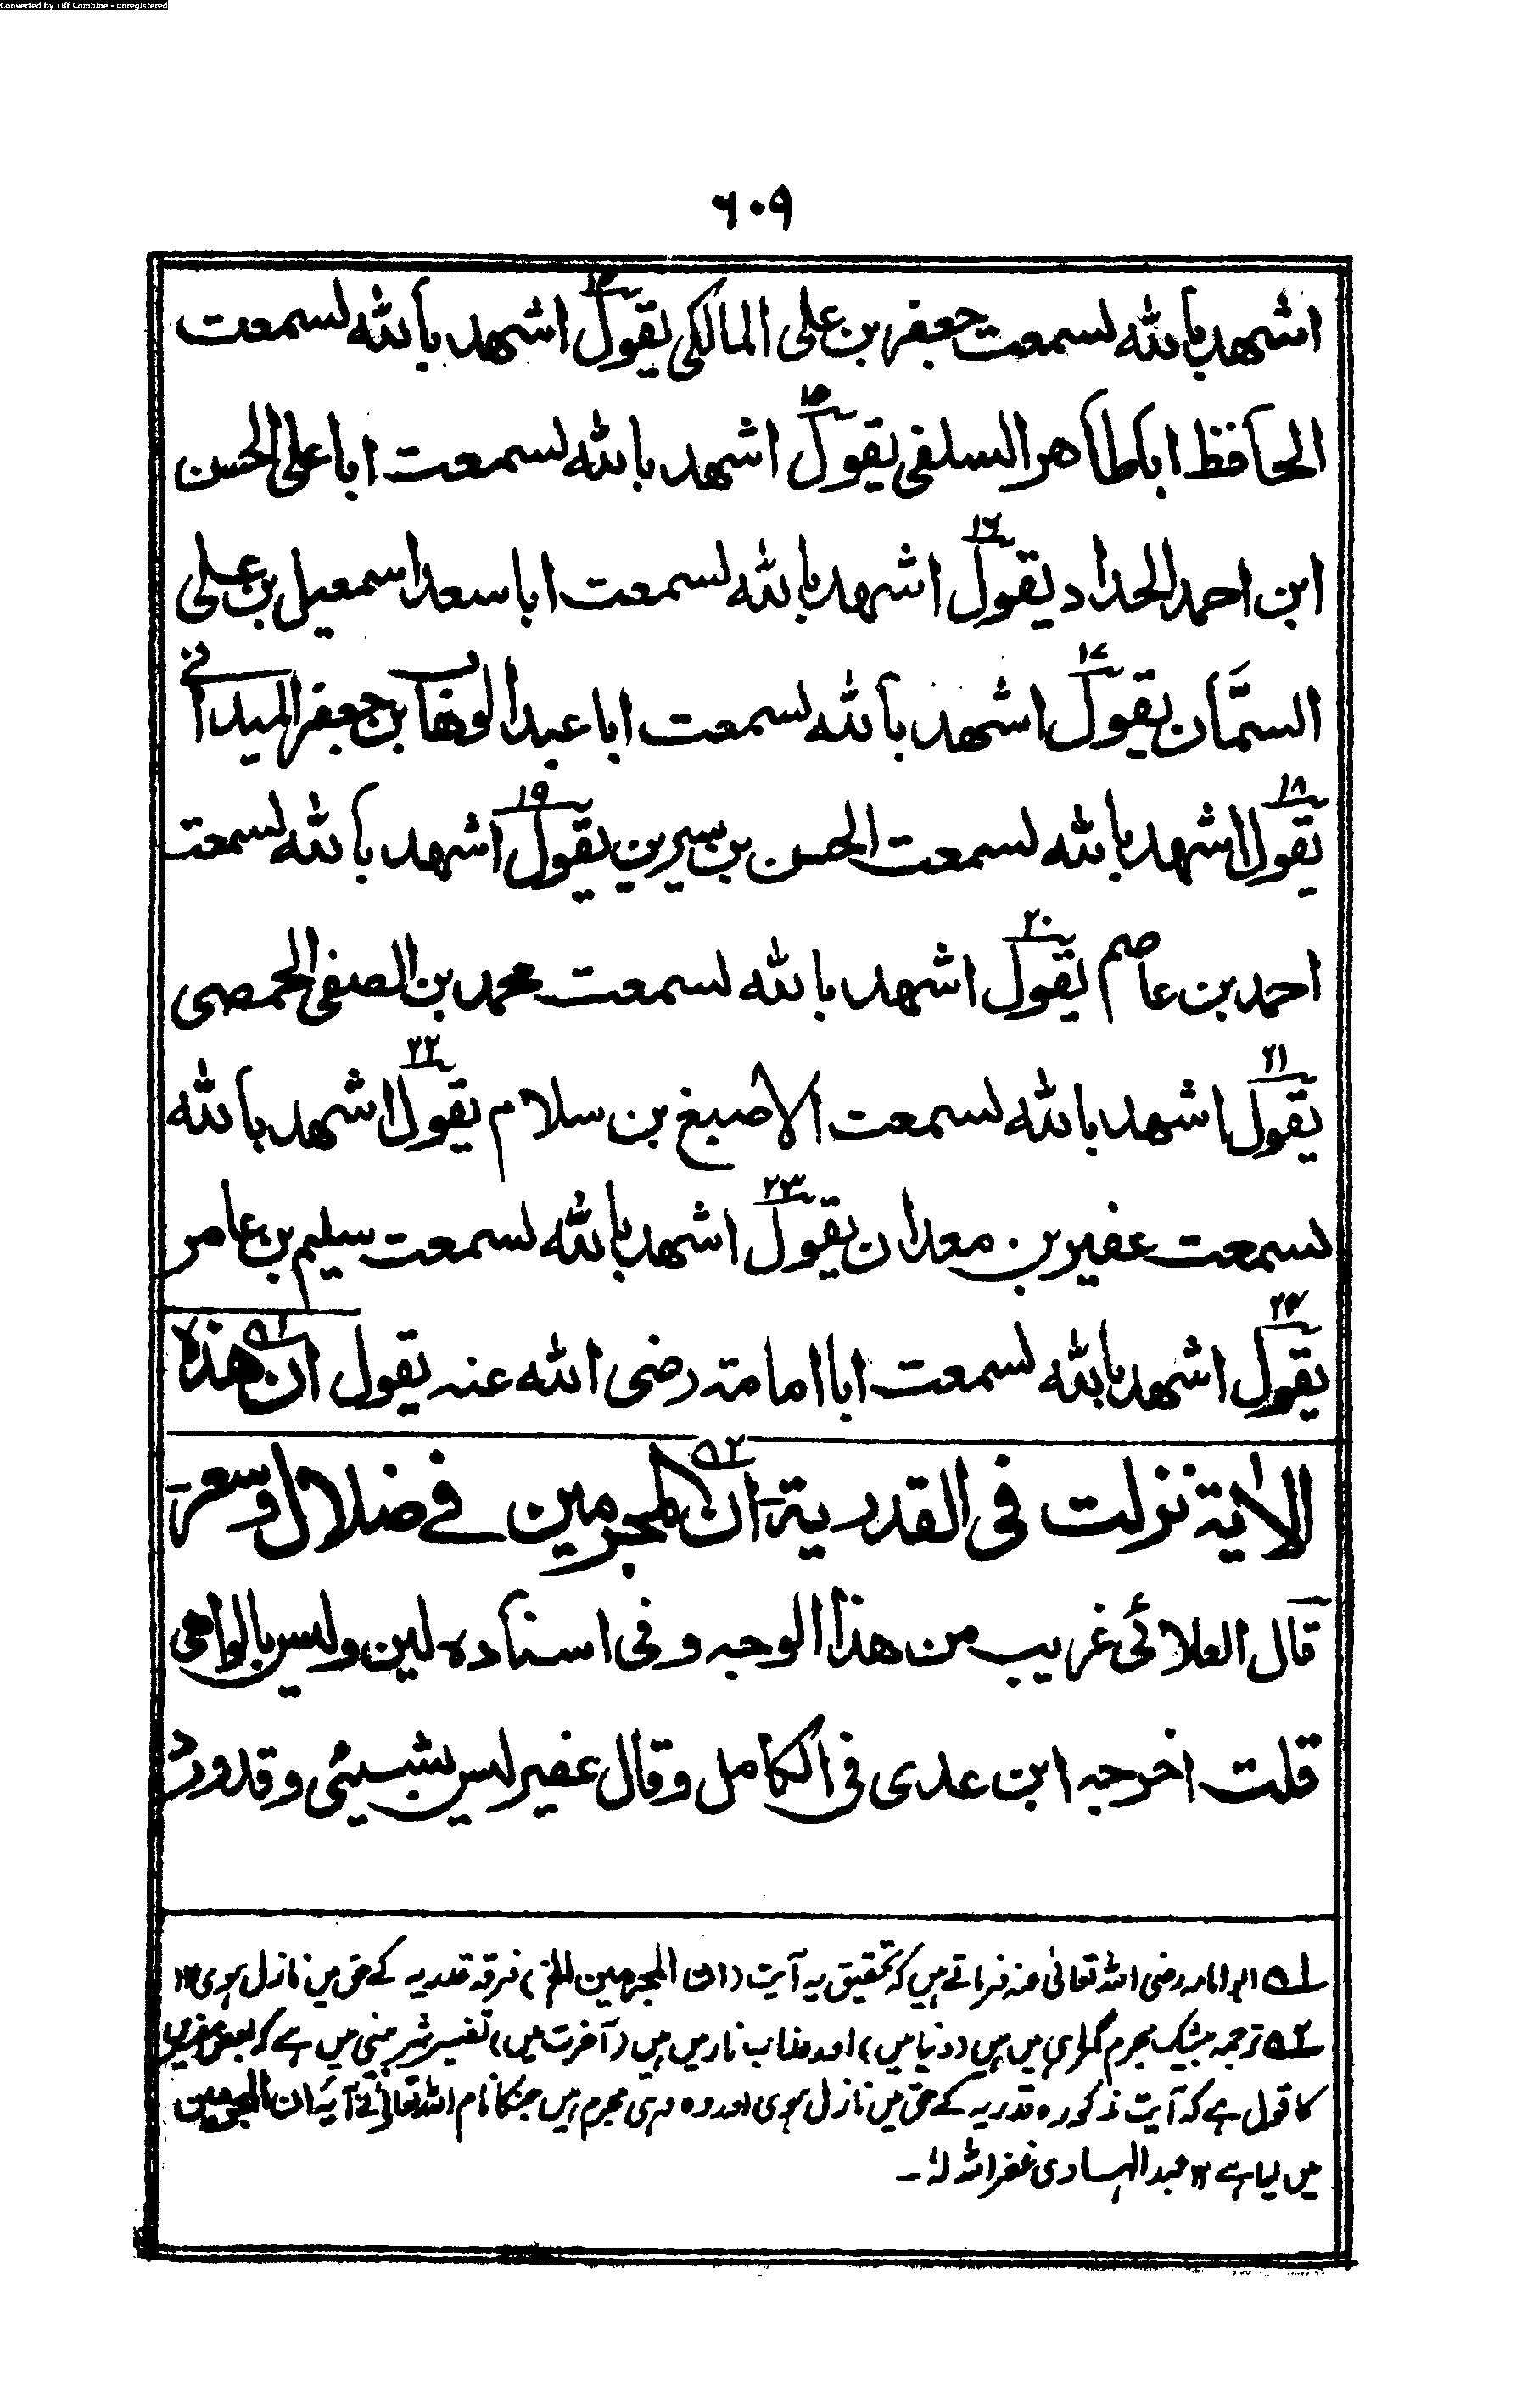 Converted by Tiff Combine - unregistered
٦٠٩
اشهد بالله لسمعت جعفر بن على المالكى يقول ١٤ اشهد بالله لسمعت
الحافظ ابا طاهر السلفى يقول ١٥ اشهد بالله لسمعت ابا على الحسن
ابن احمد الحداد يقول ١٦ اشهد بالله لسمعت ابا سعد اسمعيل بن على
السمَّان يقول ١٧ اشهد بالله لسمعت ابا عبد الوهاب بن جعفر الميدانى
يقول ١٨ اشهد بالله لسمعت الحسن بن سيرين يقول ١٩ اشهد بالله لسمعت
احمد بن عاصم يقول ٢٠ اشهد بالله لسمعت محمد بن الصفى الحمصى
يقول ٢١ اشهد بالله لسمعت الاصبغ بن سلام يقول ٢٢ اشهد بالله
لسمعت عفير بن معدان يقول ٢٣ اشهد بالله لسمعت سليم بن عامر
يقول ٢٤ اشهد بالله لسمعت ابا امامة رضى الله عنه يقول ان ١ هذه
الاية نزلت فى القدرية ان ٢ المجرمين فى ضلال وسعر
قال العلائى غريب من هذا الوجه وفى اسناده لين وليس بالواهى
قلت اخرجه ابن عدى فى الكامل وقال عفير ليس بشيئى وقد ورد
١ ابوامامہ رضی اللہ تعالیٰ عنہ فرماتے ہیں کہ تحقیق یہ آیت (ان المجرمین الخ) فرقہ قدریہ کے حق میں نازل ہوی ١٢
٢ ترجمہ بیشک مجرم گمراہی میں ہیں (دنیا میں) اور عذاب نار میں ہیں (آخرت میں) تفسیر شربینی میں ہے کہ بعض مفسرین
کا قول ہے کہ آیت مذکورہ قدریہ کے حق میں نازل ہوی اور وہ وہی مجرم ہیں جنکا نام اللہ تعالیٰ نے آیۂ ان المجرمین
میں لیا ہے ١٢ عبد الہادی غفر اللہ لہٗ -